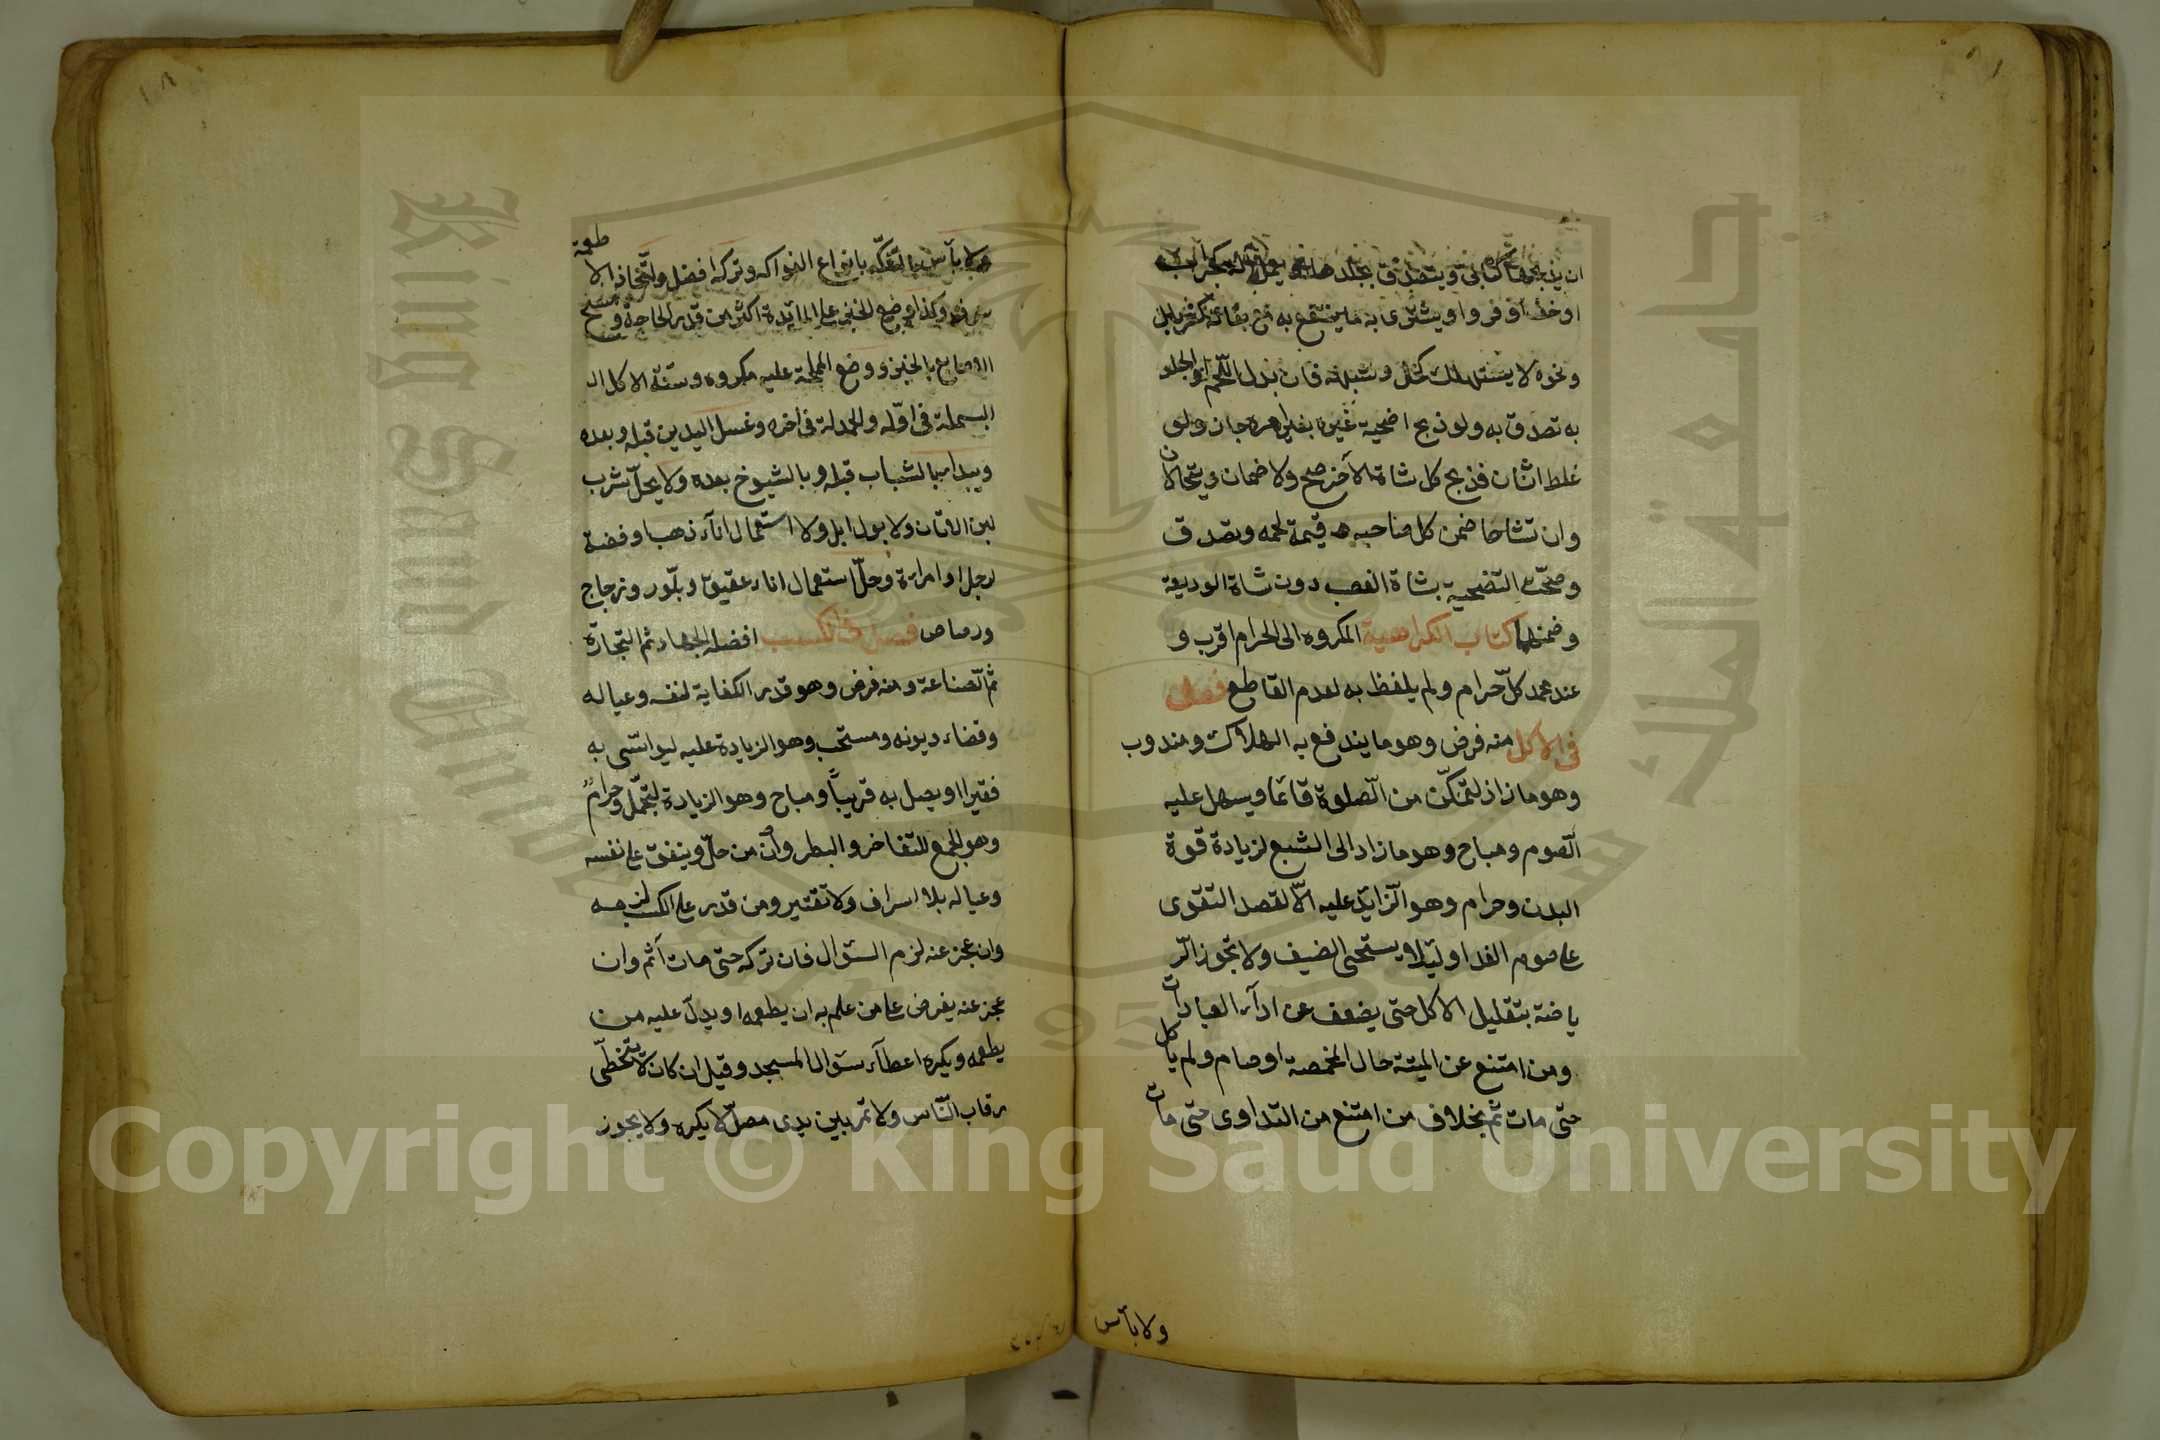 ان يذبحها كتابي ويتصدق بجلدها او يعمله آلة كجراب
او خف او فرو او يشترى به ما ينتفع به مع بقائه كغربال
ونحوه لا يستهلك كخل وشبهه فان بدل اللحم او الجلد
به تصدق به ولو ذبح اضحية غيره بغير امره جاز ولو
غلط اثنان فذبح كل شاة الآخر صح ولا ضمان ويتحالان
وان تشاحا ضمن كل صاحبه قيمة لحمه وتصدق
وصحّت التضحية بشاة الغصب دون شاة الوديعة
وضمنها كتاب الكراهية المكروه الى الحرام اقرب و
عند محمد كلّ حرام ولم يلفظ به لعدم القاطع فصل
في الاكل منه فرض وهو ما يندفع به الهلاك ومندوب
وهو ما زاد لتمكّن من الصّلوة قائما ويسهل عليه
الصّوم ومباح وهو ما زاد الى الشبع لزيادة قوة
البدن وحرام وهو الزّائد عليه الّا لقصد التقوى
على صوم الغد او ليلا يستحى الضيف ولا تجوز الرّ
ياضة بتقليل الاكل حتى يضعف عن اداء العبادات
ومن امتنع عن الميتة حال المخمصة او صام ولم يأكل
حتى مات اثم بخلاف من امتنع من التداوى حتى مات
ولا بأس
ولا بأس بالتفكّه بانواع الفواكه وتركه افضل واتّخاذ الاطعمة
سرف وكذا وضع الخبز على المائدة اكثر من قدر الحاجة ومسح
الاصابع بالخبز ووضع المملحة عليه مكروه وسنّة الاكل ال
البسملة في اوّله والحمدلة في اخره وغسل اليدين قبله وبعده
ويبدا بالشباب قبله وبالشيوخ بعده ولا يحلّ شرب
لبن الاتان ولا بول ابل ولا استعمال اناء ذهب او فضة
لرجل او امراءة وحلّ استعمال اناء عقيق وبلّور وزجاج
ورصاص فصل في الكسب افضله الجهاد ثم التجارة
ثم الصّناعة ومنه فرض وهو قدر الكفاية لنفسه وعياله
وقضاء ديونه ومستحب وهو الزيادة عليه ليواسى به
فقيرا او يصل به قريباً ومباح وهو الزيادة لتجمّل وحرام
وهو الجمع للتفاخر والبطر وان من حلّ وينفق على نفسه
وعياله بلا اسراف ولا تقتير ومن قدر على الكسب لزمه
وان عجز عنه لزم السّؤال فان تركه حتى مات آثم وان
عجز عنه يفرض على من علم به ان يطعمه او يدلّ عليه من
يطعمه ويكره اعطاء سؤال المسجد وقيل ان كان لا يتخطّى
رقاب النّاس ولا تمر بين يدى مصلّ لا يكره ولا يجوز
Copyright © King Saud University